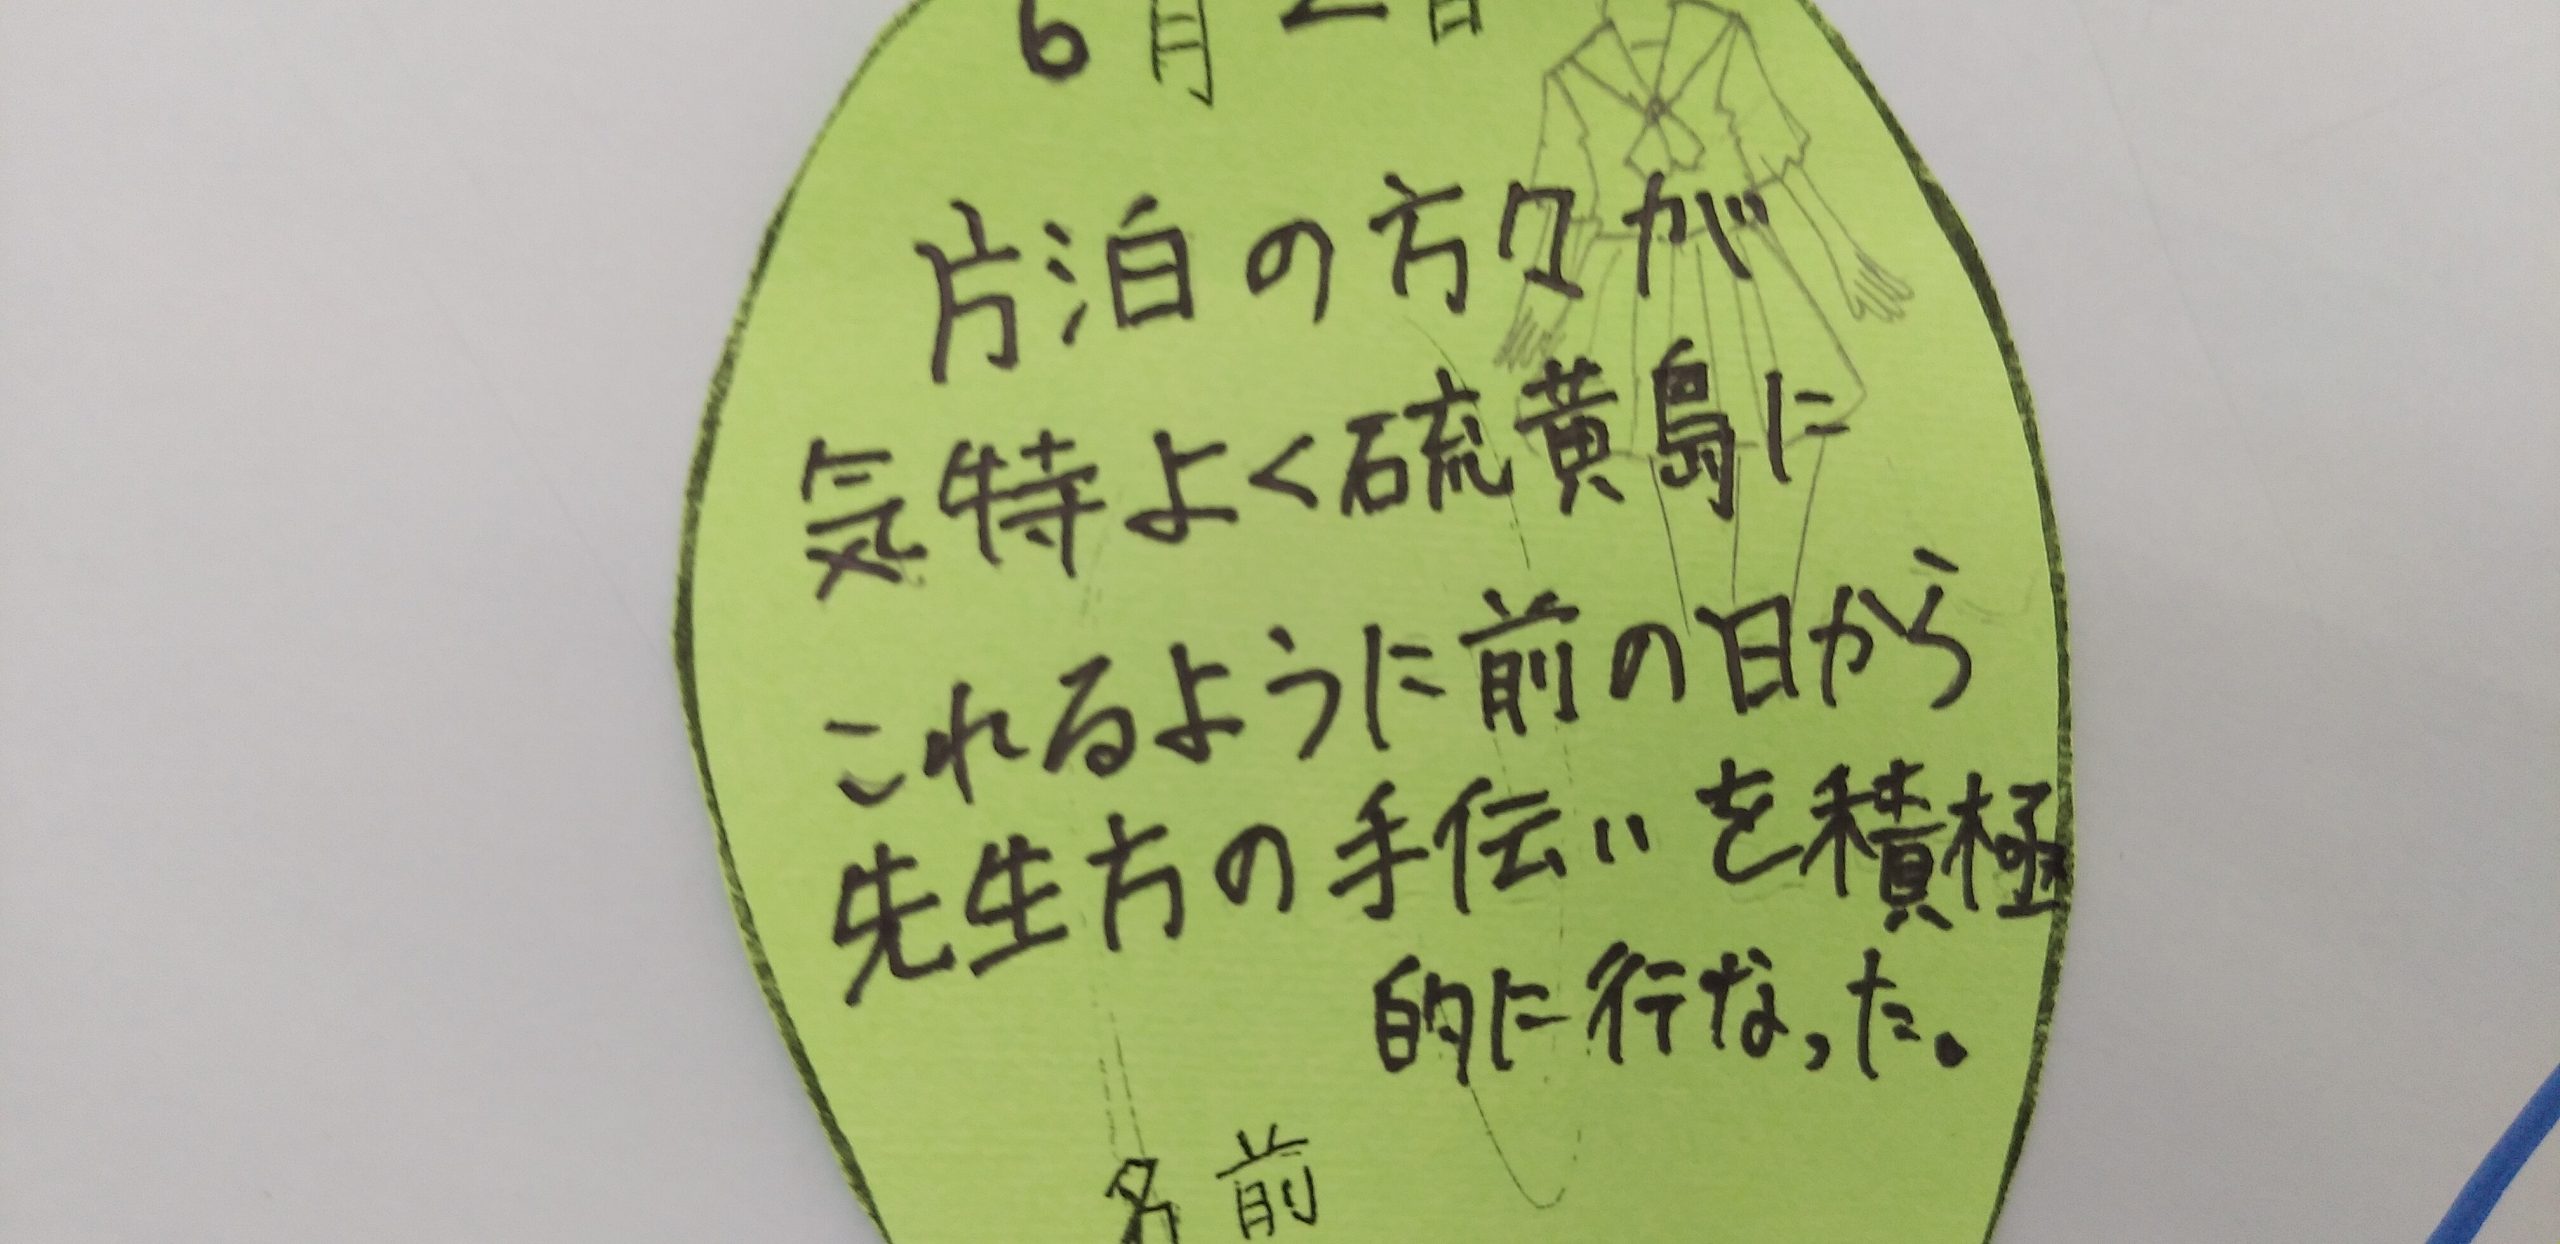 6月2日
片泊の方々が
気特よく硫黄島に
これるように前の日から
先生方の手伝いを積極
的に行なった。
名前